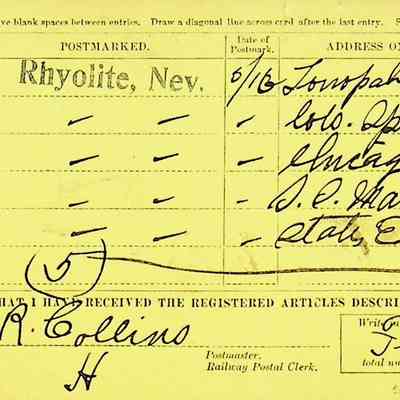 ve blank spaces between entries. Draw a diagonal line across card after the last entry. S
POSTMARKED. Date of Postmark. ADDRESS ON
Rhyolite, Nev. 5/16 Tonopah
— — — Colo. Sp
— — — Chicag
— — — S. C. Ma
— — — State, E
(5)
HAT I HAVE RECEIVED THE REGISTERED ARTICLES DESCRI
R. Collins
Postmaster,
Railway Postal Clerk.
H
Wri
total nu